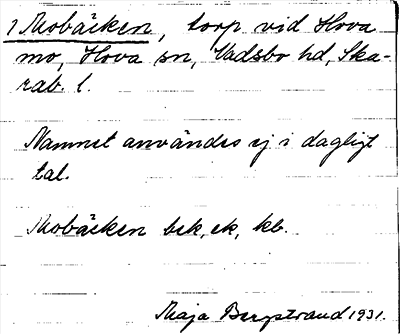 1 Mobäcken, torp vid Hova
mo, Hova sn, Vadsbo hd, Ska-
rab. l.
Namnet användes ej i dagligt
tal.
Mobäcken bek, ek, kb.
Maja Bergstrand 1931.